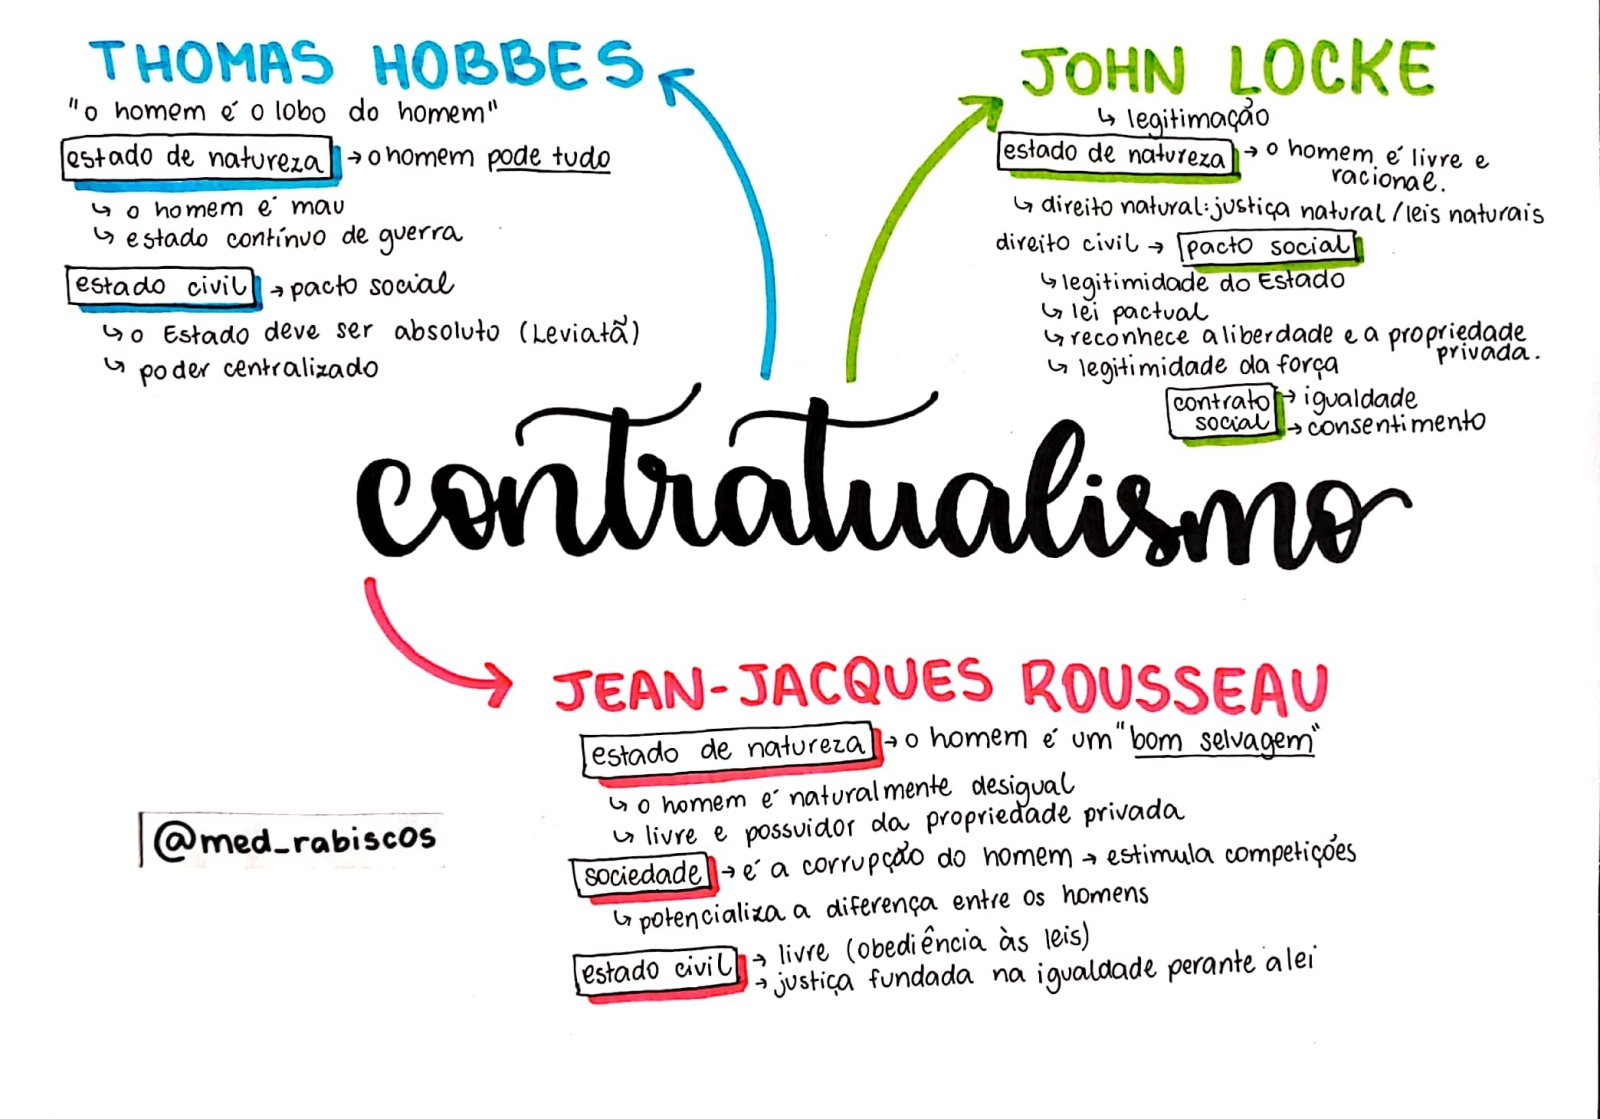 THOMAS HOBBES
"o homem é o lobo do homem"
estado de natureza → o homem pode tudo
↳ o homem é mau
↳ estado contínuo de guerra
estado civil → pacto social
↳ o Estado deve ser absoluto (Leviatã)
↳ poder centralizado
JOHN LOCKE
↳ legitimação
estado de natureza → o homem é livre e
racional.
↳ direito natural: justiça natural / leis naturais
direito civil → pacto social
↳ legitimidade do Estado
↳ lei pactual
↳ reconhece a liberdade e a propriedade
privada.
↳ legitimidade da força
contrato → igualdade
social → consentimento
contratualismo
JEAN-JACQUES ROUSSEAU
estado de natureza → o homem é um "bom selvagem"
↳ o homem é naturalmente desigual
↳ livre e possuidor da propriedade privada
sociedade → é a corrupção do homem → estimula competições
↳ potencializa a diferença entre os homens
estado civil → livre (obediência às leis)
→ justiça fundada na igualdade perante a lei
@med_rabiscos